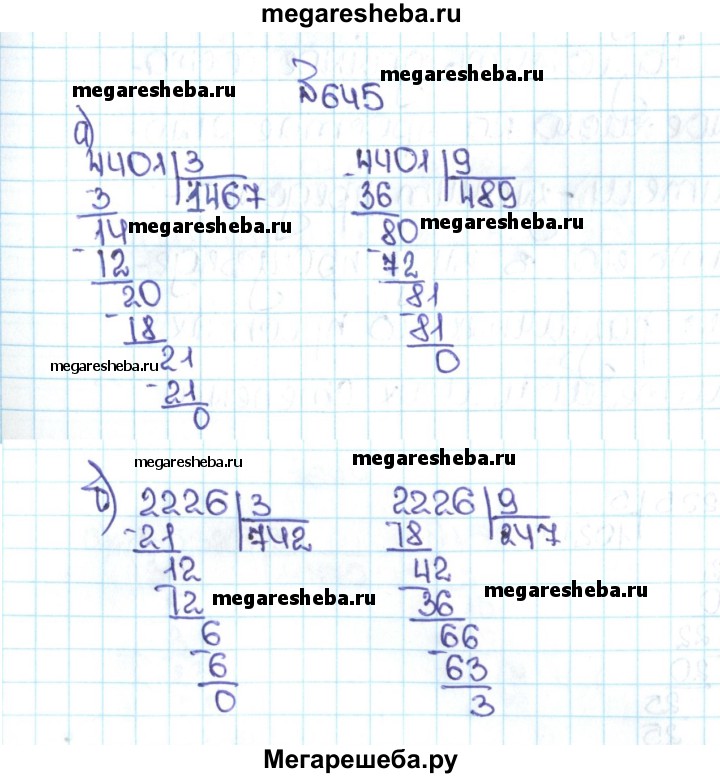 megaresheba.ru
megaresheba.ru
megaresheba.ru
№645
а)
4401 3
- 3 1467
14 megaresheba.ru
- 12
20
- 18
megaresheba.ru 21
- 21
0
- 4401 9
36 489
80 megaresheba.ru
- 72
81
- 81
0
megaresheba.ru
megaresheba.ru
б)
2226 3
- 21 742
12
- 12 megaresheba.ru
6
- 6
0
2226 9
- 18 247
42
- 36 megaresheba.ru
66
- 63
3
Мегарешеба.ру